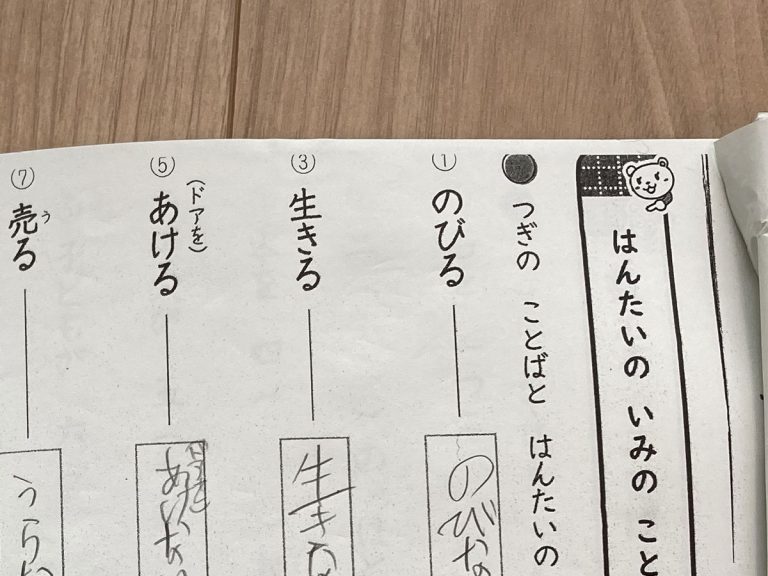 はんたいの いみの こと
つぎの ことばと はんたいの
① のびる
のびな
③ 生きる
生きな
⑤ (ドアを)あける
ドアを
あけな
⑦ 売る
う
うらな